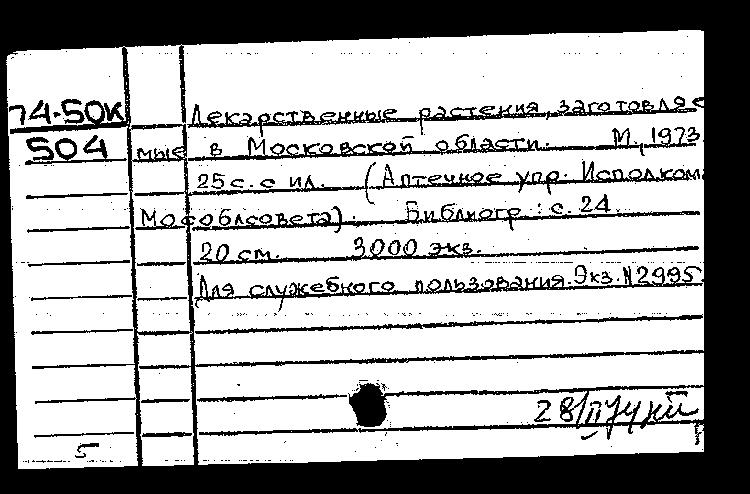 74-50к
504
Лекарственные растения, заготовляе
мые в Московской области. М., 1973
25 с. с ил. (Аптечное упр. Исполком
Мособлсовета). Библиогр.: с. 24.
20 см. 3000 экз.
Для служебного пользования. Экз. N 2995.
28/II
5